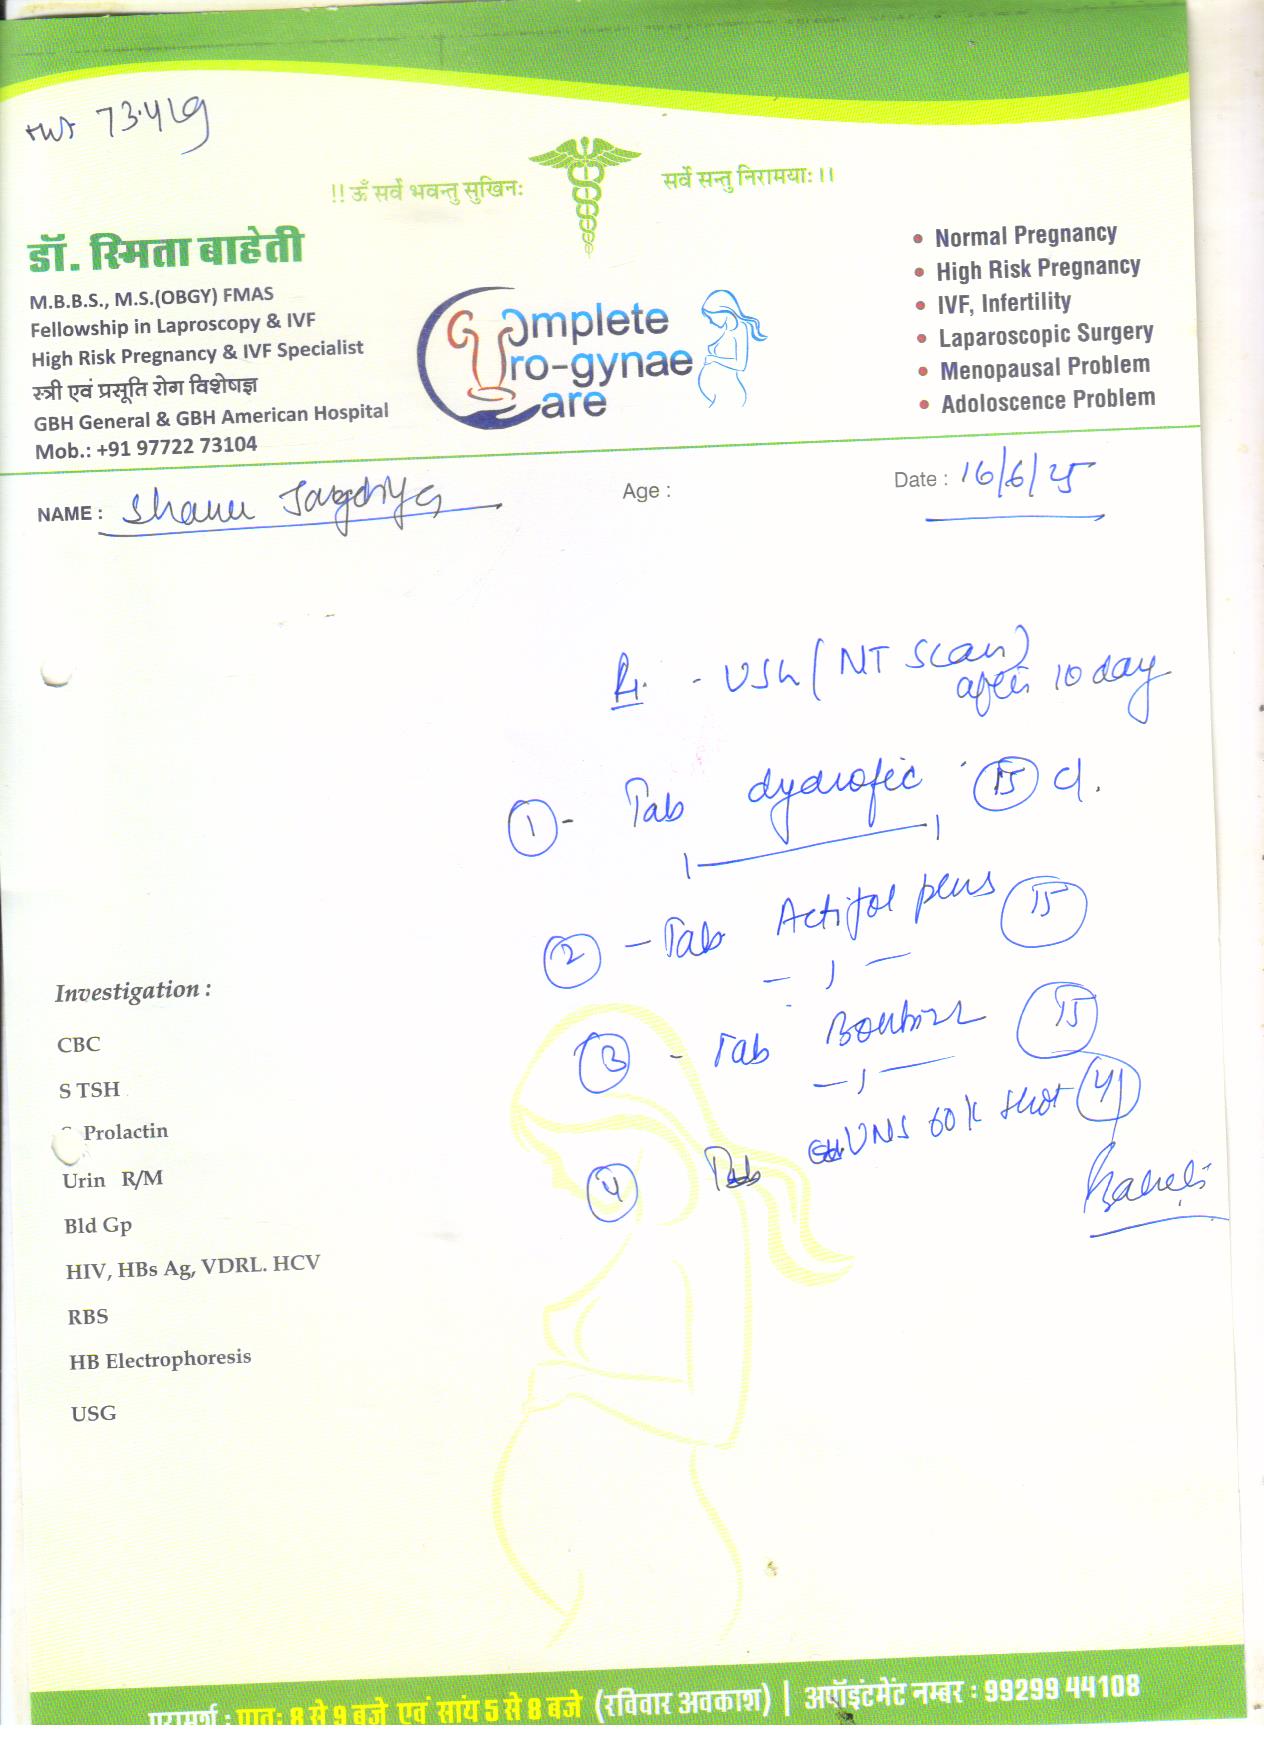 wt 73.4 kg
!! ॐ सर्वे भवन्तु सुखिनः
सर्वे सन्तु निरामयाः।।
डॉ. स्मिता बाहेती
M.B.B.S., M.S.(OBGY) FMAS
Fellowship in Laproscopy & IVF
High Risk Pregnancy & IVF Specialist
स्त्री एवं प्रसूति रोग विशेषज्ञ
GBH General & GBH American Hospital
Mob.: +91 97722 73104
Complete
Uro-gynae
Care
• Normal Pregnancy
• High Risk Pregnancy
• IVF, Infertility
• Laparoscopic Surgery
• Menopausal Problem
• Adoloscence Problem
NAME : Shanu
Age :
Date : 16/6/25
Rx - USG (NT Scan)
after 10 day
1 - Tab dydrofic 15
2 - Tab Actifol plus 15
3 - Tab 15
4 Tab UNS 60K shot 4
Baheti
Investigation :
CBC
S TSH
Prolactin
Urin R/M
Bld Gp
HIV, HBs Ag, VDRL. HCV
RBS
HB Electrophoresis
USG
परामर्श : प्रातः 8 से 9 बजे एवं सांय 5 से 8 बजे (रविवार अवकाश) | अपॉइंटमेंट नम्बर : 99299 44108